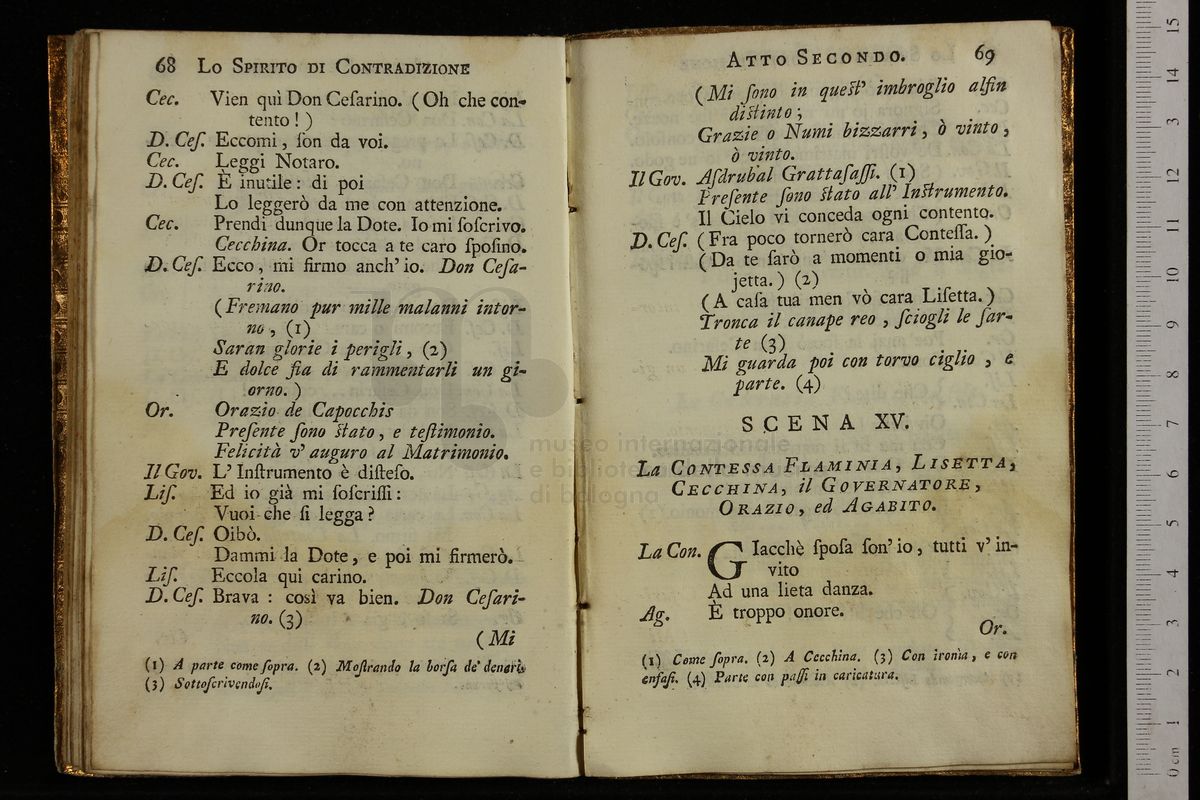 68 LO SPIRITO DI CONTRADIZIONE
Cec. Vien quì Don Ceſarino. (Oh che con-
tento!)
D. Ceſ. Eccomi, ſon da voi.
Cec. Leggi Notaro.
D. Ceſ. È inutile: di poi
Lo leggerò da me con attenzione.
Cec. Prendi dunque la Dote. Io mi ſoſcrivo.
Cecchina. Or tocca a te caro ſpoſino.
D. Ceſ. Ecco, mi firmo anch' io. Don Ceſa-
rino.
(Fremano pur mille malanni intor-
no, (1)
Saran glorie i perigli, (2)
E dolce fia di rammentarli un gi-
orno.)
Or. Orazio de Capocchis
Preſente ſono ſtato, e teſtimonio.
Felicità v' auguro al Matrimonio.
Il Gov. L' Inſtrumento è diſteſo.
Liſ. Ed io già mi ſoſcriſſi:
Vuoi che ſi legga?
D. Ceſ. Oibò.
Dammi la Dote, e poi mi firmerò.
Liſ. Eccola qui carino.
D. Ceſ. Brava: così va bien. Don Ceſari-
no. (3)
(Mi
(1) A parte come ſopra. (2) Moſtrando la borſa de' denari
(3) Sottoſcrivendoſi.
ATTO SECONDO. 69
(Mi ſono in queſt' imbroglio alfin
diſtinto;
Grazie o Numi bizzarri, ò vinto,
ò vinto.
Il Gov. Aſdrubal Grattaſaſſi. (1)
Preſente ſono ſtato all' Inſtrumento.
Il Cielo vi conceda ogni contento.
D. Ceſ. (Fra poco tornerò cara Conteſſa.)
(Da te ſarò a momenti o mia gio-
jetta.) (2)
(A caſa tua men vò cara Liſetta.)
Tronca il canape reo, ſciogli le ſar-
te (3)
Mi guarda poi con torvo ciglio, e
parte. (4)
SCENA XV.
LA CONTESSA FLAMINIA, LISETTA,
CECCHINA, il GOVERNATORE,
ORAZIO, ed AGABITO.
La Con. GIacchè ſpoſa ſon' io, tutti v' in-
vito
Ad una lieta danza.
Ag. È troppo onore.
Or.
(1) Come ſopra. (2) A Cecchina. (3) Con ironia, e con
enfaſi. (4) Parte con paſſi in caricatura.
museo internazionale
e biblioteca
di bologna
0 cm 1 2 3 4 5 6 7 8 9 10 11 12 13 14 15